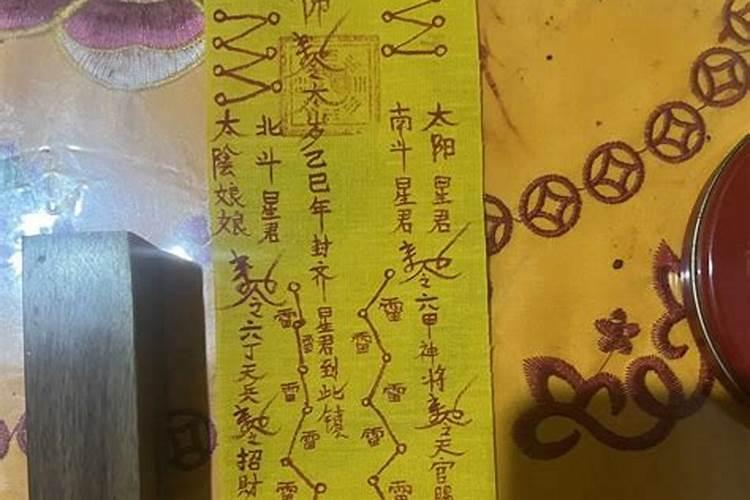 太阳星君
南斗星君
敕令六甲神将敕令天官賜
師敕令太岁己巳年封齐星君到此鎮
雷
雷
雷
雷
雷
北斗星君
太陰娘娘
敕令六丁天兵敕令招財
雷
雷
雷
雷
雷